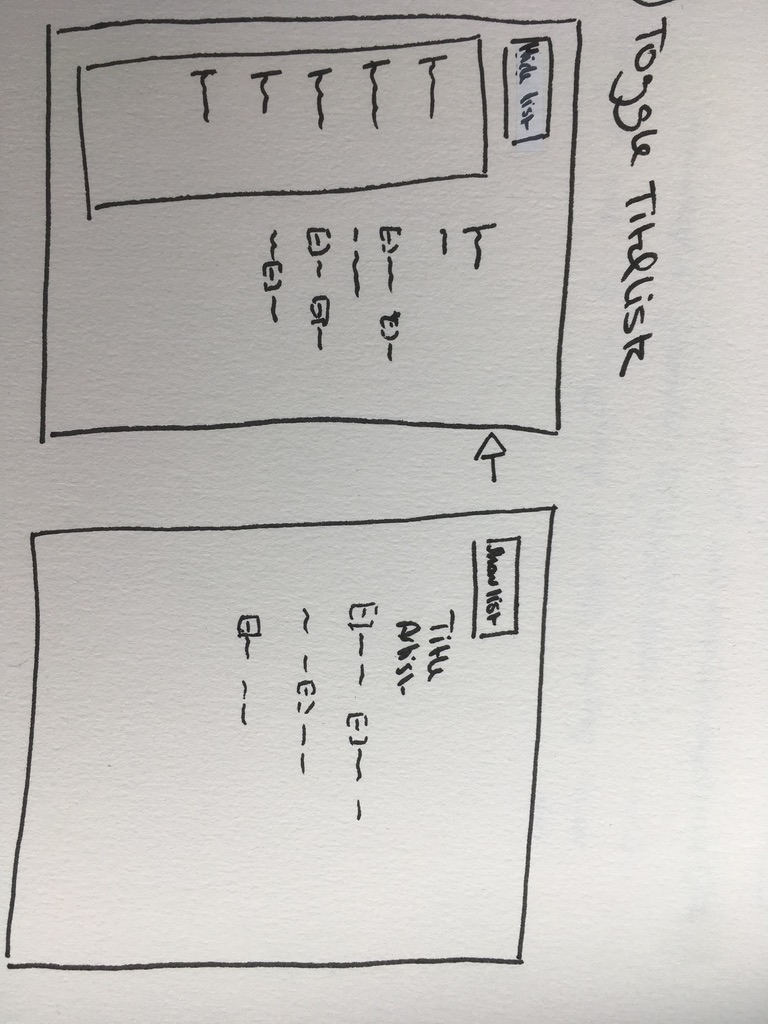 ) Toggle Titellist
Hide list
Show list
Title
Artist